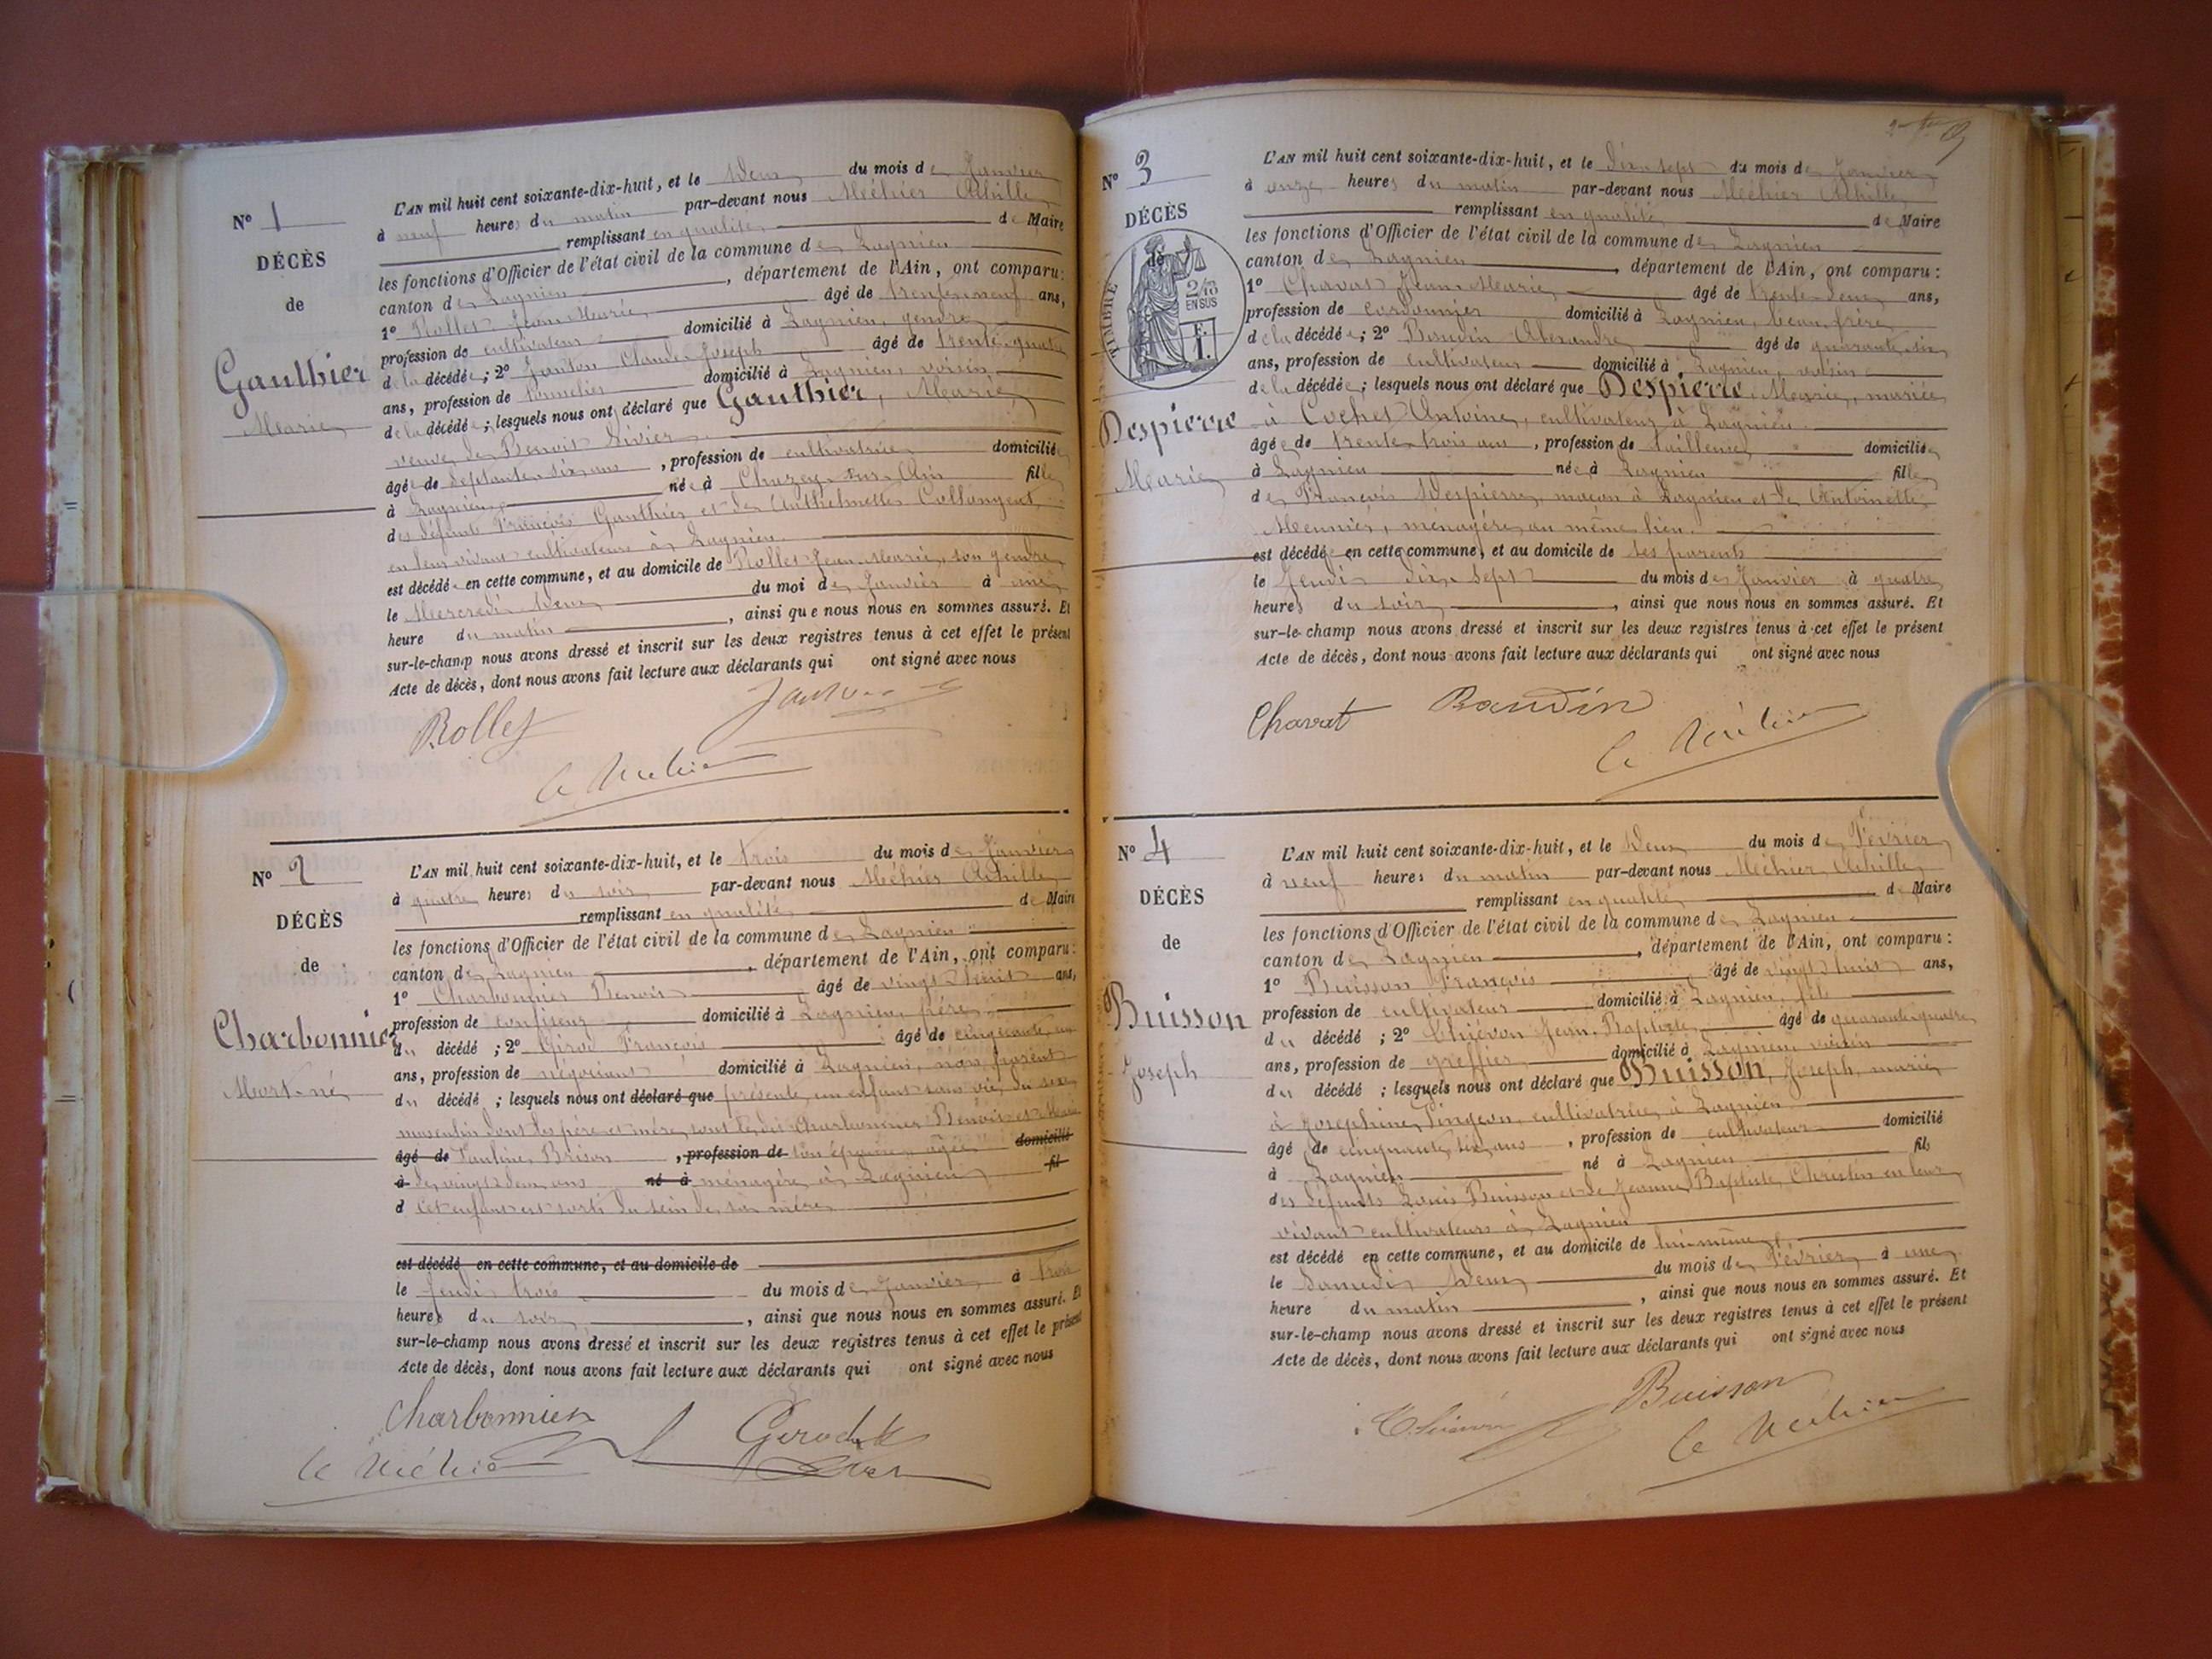 N° 1
DÉCÈS
de
Gauthier
Marie
L'AN mil huit cent soixante-dix-huit, et le Deux du mois de Janvier
à neuf heures du matin par-devant nous Méhier Achille
remplissant en qualité de Maire
les fonctions d'Officier de l'état civil de la commune de Lagnieu
canton de Lagnieu, département de l'Ain, ont comparu:
1° Rollet Jean Marie, âgé de trente-neuf ans,
profession de cultivateur domicilié à Lagnieu, gendre
de la décédée; 2° Janton Claude Joseph âgé de trente-quatre
ans, profession de domicilié à Lagnieu, voisin
de la décédée; lesquels nous ont déclaré que Gauthier, Marie,
veuve de Benoit Sivier
âgée de septante-six ans, profession de cultivatrice domiciliée
à Lagnieu, née à Chazey-sur-Ain fille
des défunts François Gauthier et de Anthelmette Collonget,
en leur vivant cultivateurs à Lagnieu.
est décédée en cette commune, et au domicile de Rollet Jean Marie, son gendre
le Mercredi deux du moi de Janvier à une
heure du matin, ainsi que nous nous en sommes assuré. Et
sur-le-champ nous avons dressé et inscrit sur les deux registres tenus à cet effet le présent
Acte de décès, dont nous avons fait lecture aux déclarants qui ont signé avec nous
Rollet
A Méhier
N° 2
DÉCÈS
de
Charbonnier
Mort-né
L'AN mil huit cent soixante-dix-huit, et le trois du mois de Janvier
à quatre heures du soir par-devant nous Méhier Achille
remplissant en qualité de Maire
les fonctions d'Officier de l'état civil de la commune de Lagnieu
canton de Lagnieu, département de l'Ain, ont comparu:
1° Charbonnier Benoit âgé de vingt-huit ans,
profession de confiseur domicilié à Lagnieu, père
du décédé; 2° Girod François âgé de cinquante-un
ans, profession de négociant domicilié à Lagnieu, non parent
du décédé; lesquels nous ont déclaré que présenté un enfant sans vie, du sexe
masculin dont les père et mère sont le dit Charbonnier Benoit et Marie
âgé de Pauline Brison, profession de son épouse, âgée domicilié
à de vingt-deux ans né à ménagère à Lagnieu fil
d cet enfant est sorti du sein de sa mère
est décédé en cette commune, et au domicile de
le Jeudi trois du mois de Janvier à trois
heures du soir, ainsi que nous nous en sommes assuré. Et
sur-le-champ nous avons dressé et inscrit sur les deux registres tenus à cet effet le présent
Acte de décès, dont nous avons fait lecture aux déclarants qui ont signé avec nous
Charbonnier
A Méhier
N° 3
DÉCÈS
de
TIMBRE
2/10
EN SUS
Despierre
Marie
L'AN mil huit cent soixante-dix-huit, et le dix-sept du mois de Janvier
à onze heures du matin par-devant nous Méhier Achille
remplissant en qualité de Maire
les fonctions d'Officier de l'état civil de la commune de Lagnieu
canton de Lagnieu, département de l'Ain, ont comparu:
1° Chavat Jean Marie, âgé de trente-deux ans,
profession de cordonnier domicilié à Lagnieu, beau-frère
de la décédée; 2° Baudin Alexandre âgé de quarante-six
ans, profession de cultivateur domicilié à Lagnieu, voisin
de la décédée; lesquels nous ont déclaré que Despierre, Marie, mariée
à Cochet Antoine, cultivateur à Lagnieu
âgée de trente-trois ans, profession de tailleuse domiciliée
à Lagnieu née à Lagnieu fille
de François Despierre, maçon à Lagnieu et de Antoinette
Meunier, ménagère au même lieu.
est décédée en cette commune, et au domicile de ses parents
le Jeudi dix-sept du mois de Janvier à quatre
heures du soir, ainsi que nous nous en sommes assuré. Et
sur-le-champ nous avons dressé et inscrit sur les deux registres tenus à cet effet le présent
Acte de décès, dont nous avons fait lecture aux déclarants qui ont signé avec nous
Chavat Baudin
A Méhier
N° 4
DÉCÈS
de
Buisson
Joseph
L'AN mil huit cent soixante-dix-huit, et le Deux du mois de Février
à neuf heures du matin par-devant nous Méhier Achille
remplissant en qualité de Maire
les fonctions d'Officier de l'état civil de la commune de Lagnieu
canton de Lagnieu, département de l'Ain, ont comparu:
1° Buisson François âgé de vingt-huit ans,
profession de cultivateur domicilié à Lagnieu, fils
du décédé; 2° Thiévon Jean-Baptiste âgé de quarante-quatre
ans, profession de greffier domicilié à Lagnieu, voisin
du décédé; lesquels nous ont déclaré que Buisson, Joseph, marié
à Joséphine Pingeon, cultivatrice à Lagnieu
âgé de cinquante-six ans, profession de cultivateur domicilié
à Lagnieu né à Lagnieu fils
des défunts Louis Buisson et de Jeanne Baptiste Christin en leur
vivant cultivateurs à Lagnieu
est décédé en cette commune, et au domicile de lui-même
le Samedi deux du mois de Février à une
heure du matin, ainsi que nous nous en sommes assuré. Et
sur-le-champ nous avons dressé et inscrit sur les deux registres tenus à cet effet le présent
Acte de décès, dont nous avons fait lecture aux déclarants qui ont signé avec nous
Buisson
A Méhier